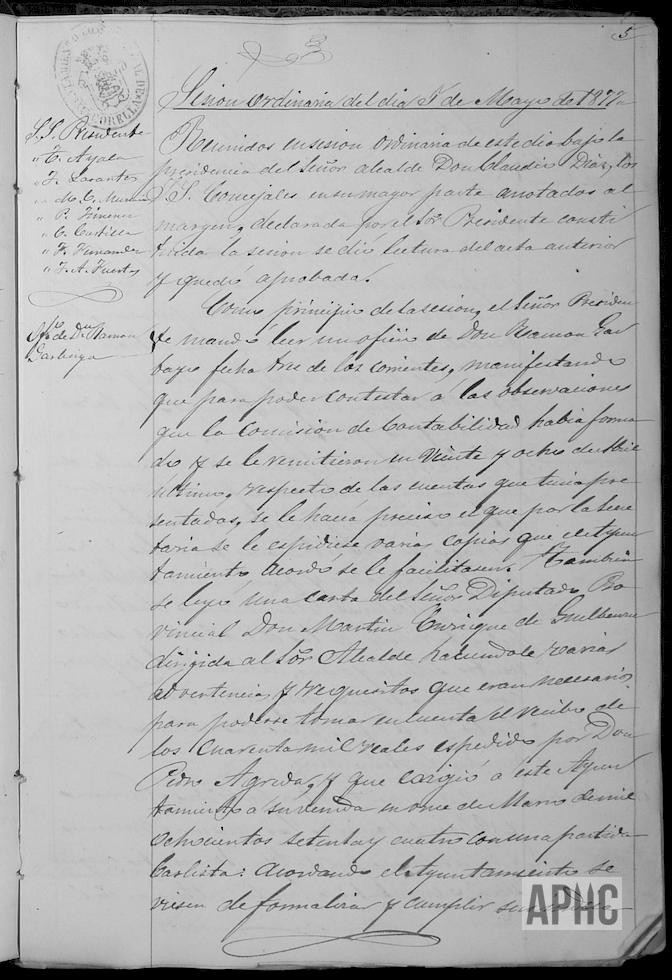 5
Sesion ordinaria del dia 5 de Mayo de 1877
S.S. Presidente
" T. Ayala
" F. Lasanta
" M. C.
" P. Ximenez
" C. Castilla
" F. Fernandez
" J. A. Fuertes
Reunidos en sesion ordinaria de este dia bajo la
presidencia del Señor alcalde Don Claudio Diaz, los
S.S. Concejales en su mayor parte anotados al
margen, declarada por el Sor. Presidente consti
tuida la sesion se dió lectura del acta anterior
y quedó aprobada.
Ofo. de Dn. Ramon
Como principio de la sesion, el Señor Presiden
te mandó leer un oficio de Don Ramon
bajo fecha tres de los corrientes, manifestando
que para poder contestar á las observaciones
que la Comisión de Contabilidad habia forma
do y se le remitieron en veinte y ocho de Abril
ultimo, respecto de las cuentas que tenia pre
sentadas, se le hacia preciso el que por la Secre
taria se le espidiese varias copias que el Ayun
tamiento acordó se le facilitasen. Tambien
se leyó una carta del Señor Diputado Pro
vincial Don Martin Enrique de Guelbenzu
dirigida al Sor. Alcalde haciendole varias
advertencias y requisitos que eran necesarios
para poderse tomar en cuenta el recibo de
los cuarenta mil reales espedido por Don
Pedro Agreda, y que exigió á este Ayun
tamiento á su venida en once de Marzo de mil
ochocientos setenta y cuatro con una partida
Carlista: acordando el Ayuntamiento se
viesen de formalizar y cumplir
APHC